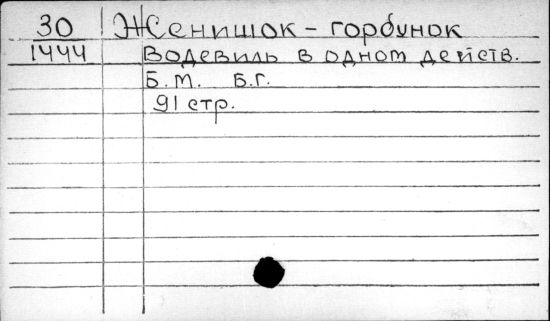 30 Женишок - горбунок
1444 Водевиль в одном действ.
Б.м. Б.г.
91 стр.